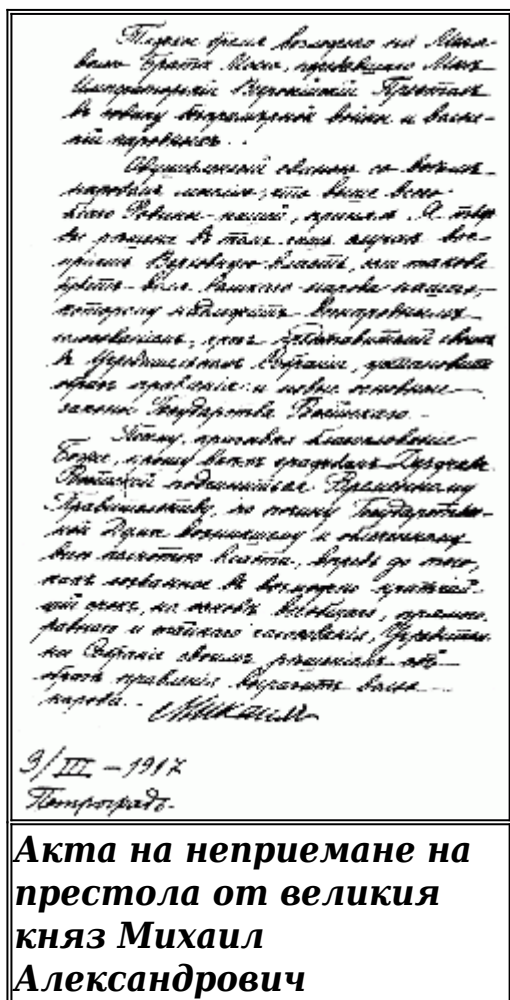 Тяжкое бремя возложено на Меня
волею Брата Моего, передавшаго Мнѣ
Императорскiй Всероссiйскiй Престолъ
въ годину безпримѣрной войны и волне-
нiй народныхъ.
Одушевленный единою со всѣмъ
народомъ мыслiю, что выше всего
благо Родины нашей, принялъ Я твер-
дое рѣшенiе въ томъ лишь случаѣ вос-
прiять Верховную власть, если такова
будетъ воля великаго народа нашего,
которому надлежитъ всенароднымъ
голосованiемъ, чрезъ представителей своихъ
въ Учредительномъ Собранiи, установить
образъ правленiя и новые основные
законы Государства Россiйскаго.
Посему, призывая благословенiе
Божiе, прошу всѣхъ гражданъ Державы
Россiйской подчиниться Временному
Правительству, по почину Государствен-
ной Думы возникшему и облеченному
всею полнотою власти, впредь до того,
какъ созванное въ возможно кратчай-
шiй срокъ, на основѣ всеобщаго, прямого,
равнаго и тайнаго голосованiя, Учредитель-
ное Собранiе своимъ рѣшенiемъ объ
образѣ правленiя выразитъ волю
народа.
Михаилъ
3/III – 1917
Петроградъ.
Акта на неприемане на
престола от великия
княз Михаил
Александрович